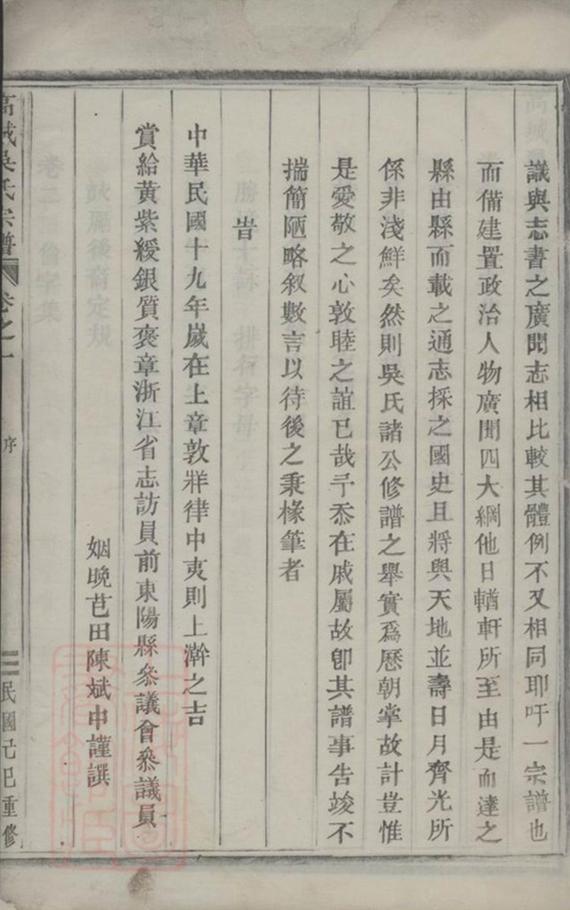 識與志書之廣聞志相比較其體例不又相同耶吁一宗譜也
而備建置政治人物廣聞四大綱他日輶軒所至由是而達之
縣由縣而載之通志採之國史且將與天地並壽日月齊光所
係非淺鮮矣然則吳氏諸公修譜之舉實爲歷朝掌故計豈惟
是愛敬之心敦睦之誼已哉予忝在戚屬故卽其譜事告竣不
揣簡陋略叙數言以待後之秉椽筆者
旹
中華民國十九年嵗在上章敦牂律中夷則上澣之吉
賞給黃紫綬銀質褒章浙江省志訪員前東陽縣叅議會叅議員
姻晚芑田陳斌中謹譔
高城吳氏宗譜 卷之一 序 民國己巳重修